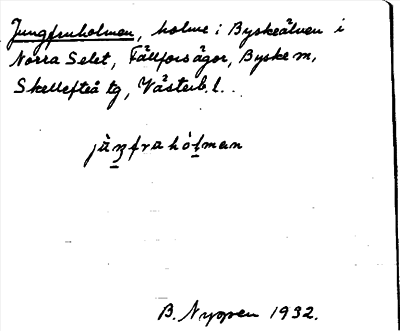 Jungfruholmen, holme i Byskeälven i
Norra Selet, Fällforsågor, Byske sn,
Skellefteå tg, Västerb. l.
B. Nygren 1932.